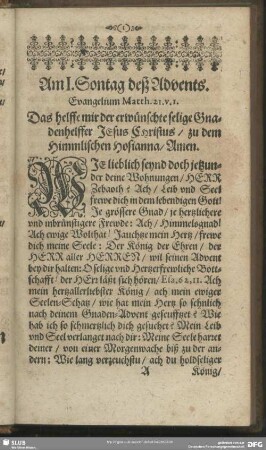 ( 1 )
Am I. Sontag deß Advents.
Evangelium Matth. 21. v. 1.
Das helffe mir der erwünschte selige Gna-
denhelffer JEsus CHristus / zu dem
Himmlischen Hosianna / Amen.
WIe lieblich seynd doch jetzun-
der deine Wohnungen / HERR
Zebaoth? Ach / Leib und Seel
frewe dich in dem lebendigen Gott!
Je grössere Gnad / je hertzlichere
und inbrünstigere Frewde: Ach / Himmelsgnad!
Ach ewige Wolthat! Jauchze mein Hertz / frewe
dich meine Seele: Der König der Ehren / der
HERR aller HERREN / wil seinen Advent
bey dir halten: O selige und Hertzerfrewliche Bott-
schafft / der HErr läst sich hören / Esa, 62, 11. Ach
mein hertzallerliebster König / ach mein ewiger
Seelen-Schatz / wie hat mein Hertz so sehnlich
nach deinem Gnaden-Advent geseufftzet? Wie
hab ich so schmertzlich dich gesuchet? Mein Leib
und Seel verlanget nach dir: Meine Seele harret
deiner / von einer Morgenwache biß zu der an-
dern: Wie lang verzeuchstu / ach du holdseliger
A König /
SLUB
DFG